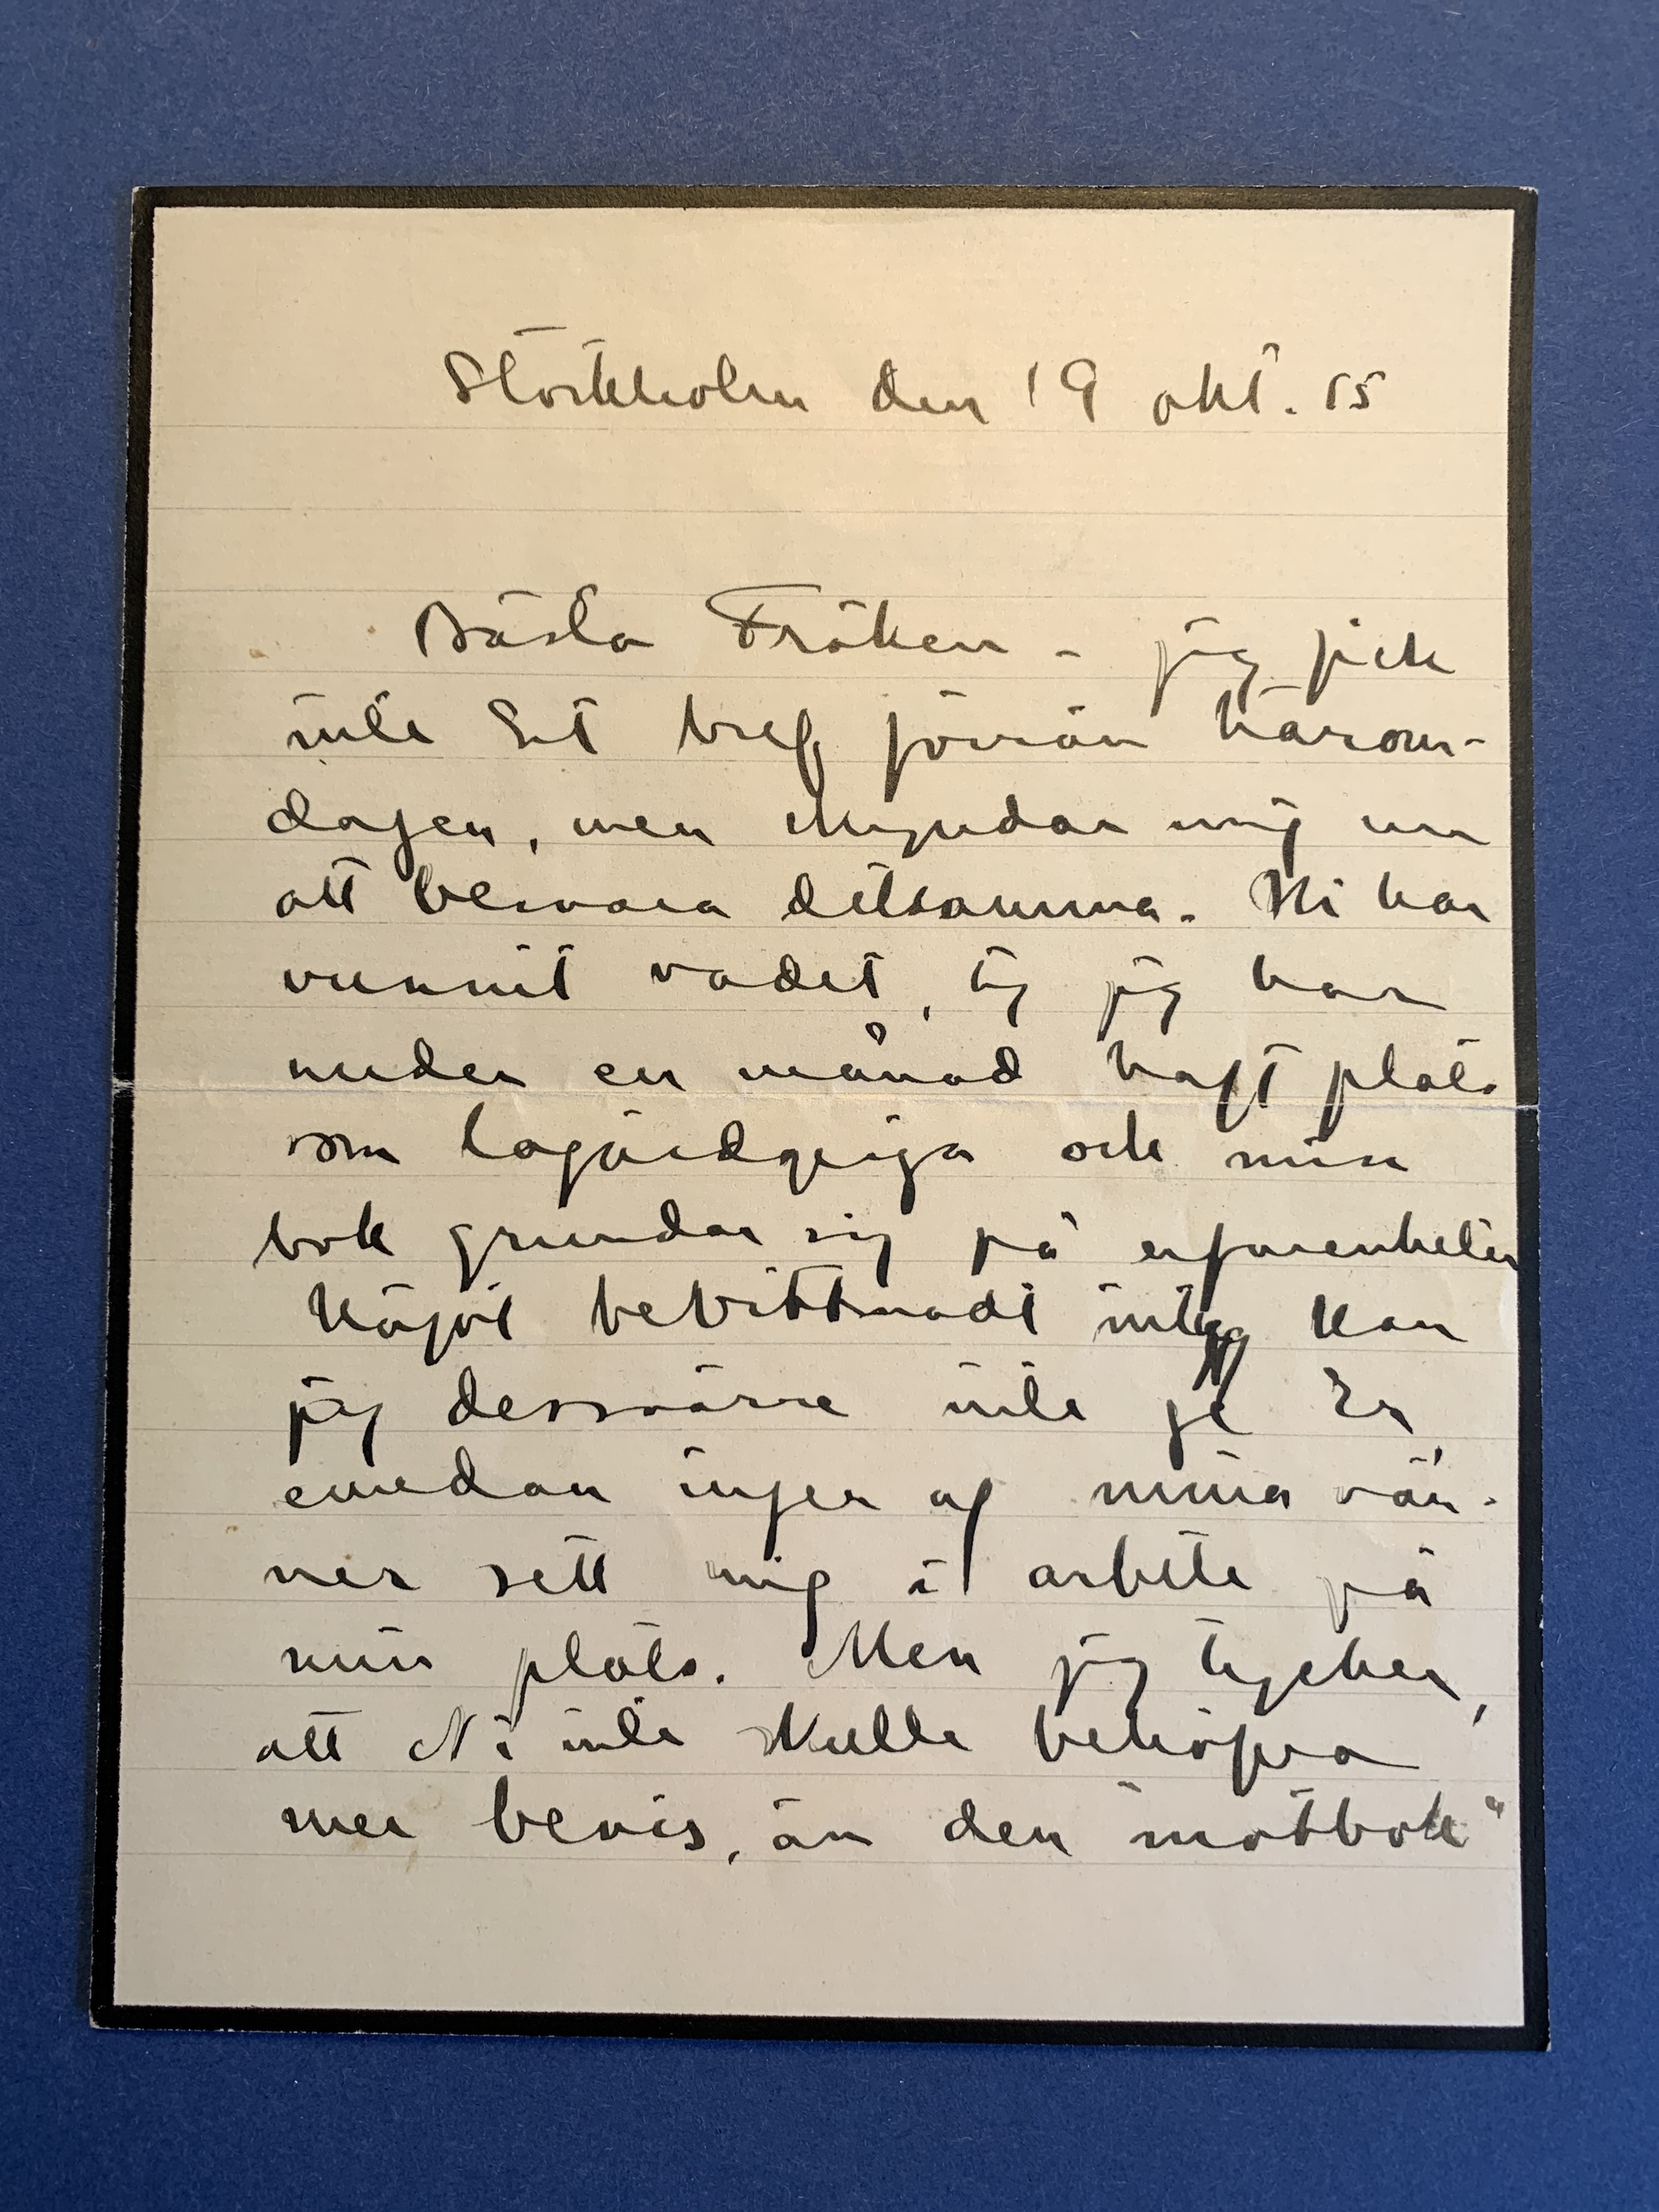 Stockholm den 19 okt. 15
Bästa Fröken - jag fick
inte Ert bref förrän härom-
dagen, men skyndar mig nu
att besvara detsamma. Ni har
vunnit vadet, ty jag har
under en månad haft plats
som lagårdspiga och min
bok grundar sig på erfarenheter
Något bevittnadt intyg kan
jag dessvärre inte ge Er,
emedan ingen af mina vän-
ner sett mig i arbete på
min plats. Men jag tycker,
att Ni inte skulle behöfva
mer bevis, än den "motbok"